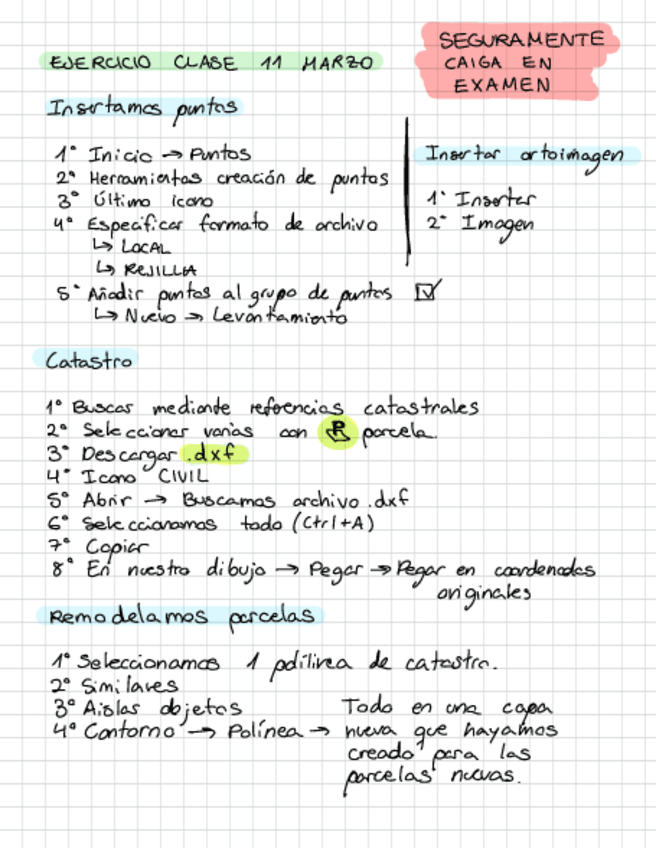 EJERCICIO CLASE 11 MARZO
SEGURAMENTE
CAIGA EN
EXAMEN
Insertamos puntos
1º Inicio → Puntos
2º Herramientas creación de puntos
3º Último icono
4º Especificar formato de archivo
↳ LOCAL
↳ REJILLA
5º Añadir puntos al grupo de puntos ☑
↳ Nuevo → Levantamiento
Insertar ortoimagen
1º Insertar
2º Imagen
Catastro
1º Buscar mediante referencias catastrales
2º Seleccionar varias con P parcela.
3º Descargar .dxf
4º Icono CIVIL
5º Abrir → Buscamos archivo .dxf
6º Seleccionamos todo (Ctrl+A)
7º Copiar
8º En nuestro dibujo → Pegar → Pegar en coordenadas
originales
Remodelamos parcelas
1º Seleccionamos 1 polilinea de catastro.
2º Similares
3º Aislas objetos
4º Contorno → Polínea →
Todo en una capa
nueva que hayamos
creado para las
parcelas nuevas.